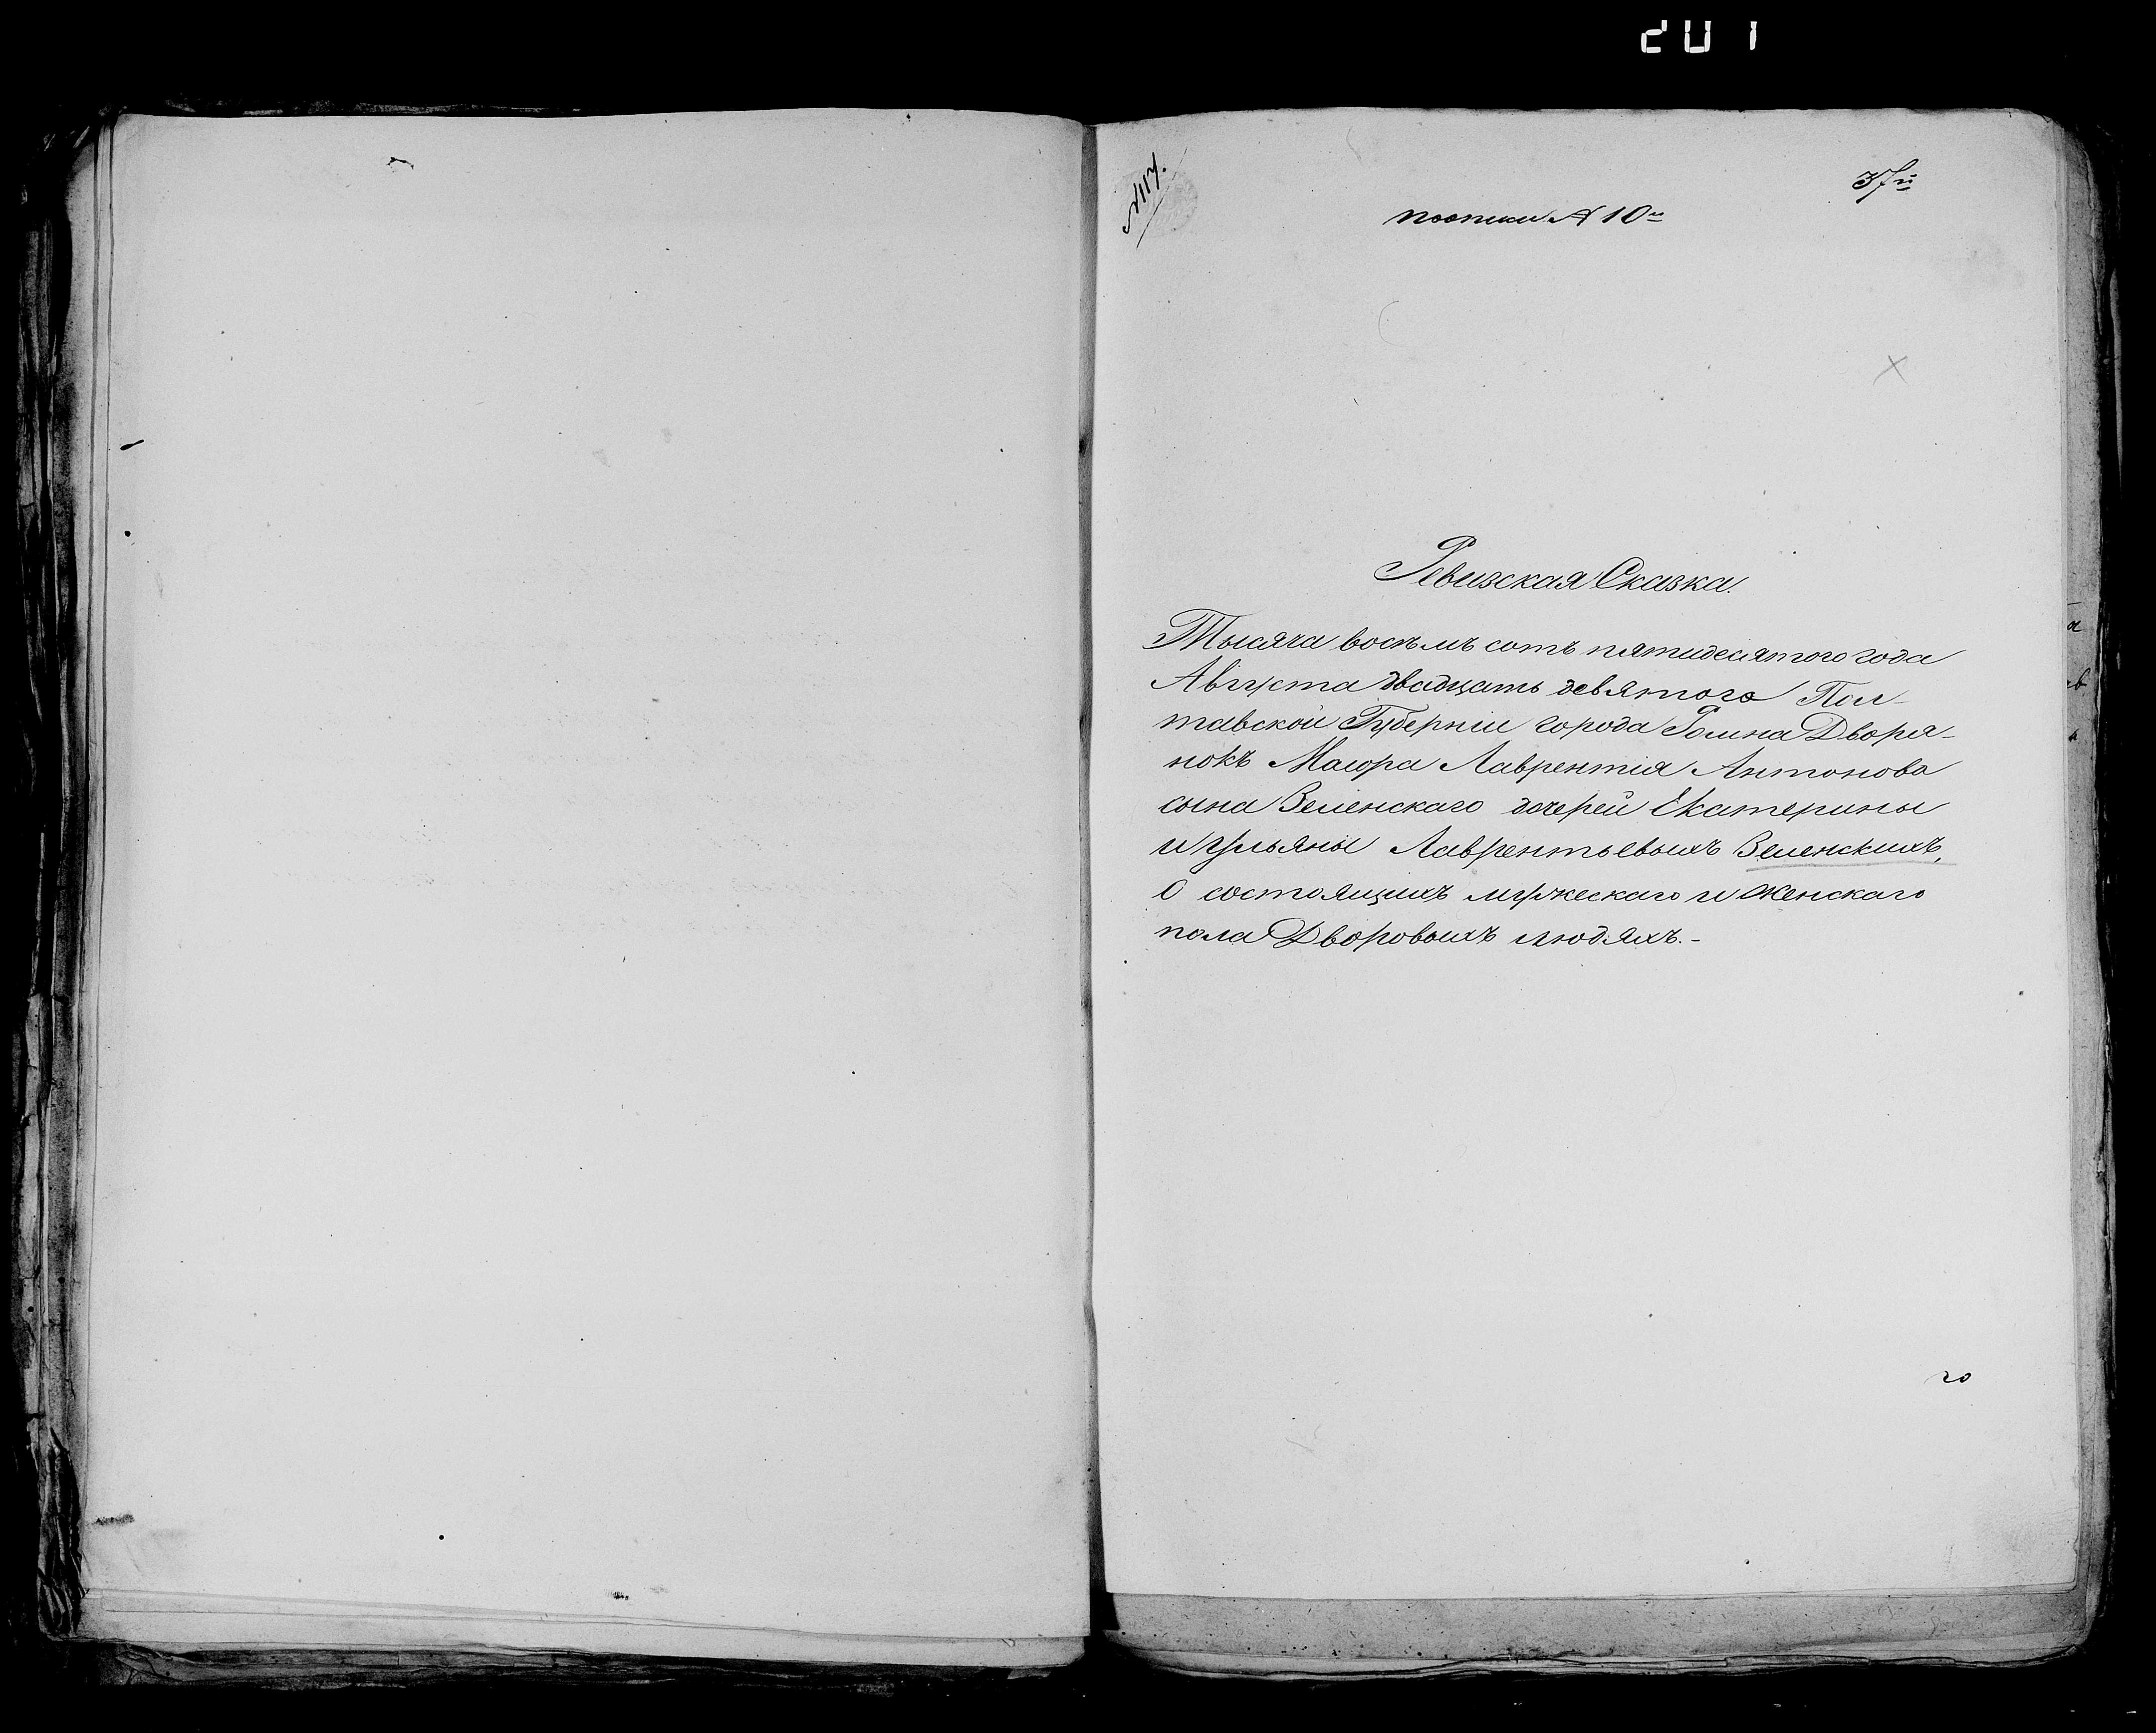 201
37й
по описи № 10й
Ревизская Сказка.
Тысяча восемь сотъ пятидесятого года
Августа двадцать девятого Пол-
тавской Губерніи города Ромна Дворя-
нокъ Маіора Лаврентія Антонова
сына Зеленскаго дочерей Екатерины
и Ульяны Лаврентьевыхъ Зеленскихъ,
О состоящихъ мужескаго и женскаго
пола Дворовыхъ людяхъ.-